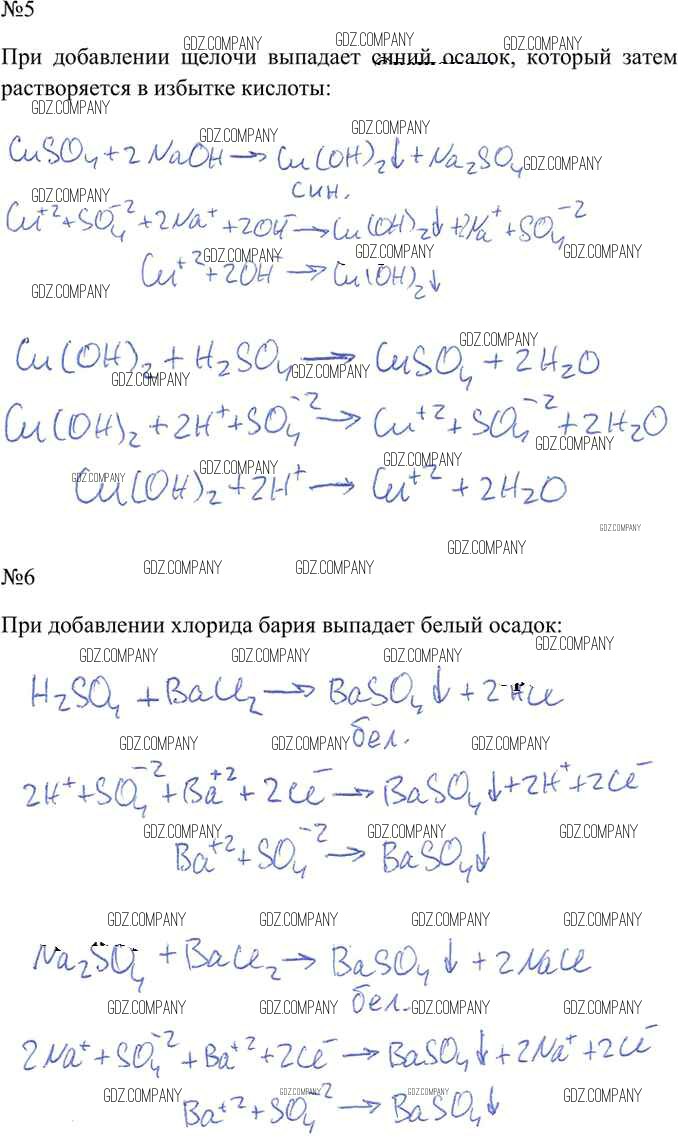 №5
При добавлении щелочи выпадает синий осадок, который затем
растворяется в избытке кислоты:
CuSO₄ + 2NaOH → Cu(OH)₂↓ + Na₂SO₄
син.
Cu⁺² + SO₄⁻² + 2Na⁺ + 2OH⁻ → Cu(OH)₂↓ + 2Na⁺ + SO₄⁻²
Cu⁺² + 2OH⁻ → Cu(OH)₂↓
Cu(OH)₂ + H₂SO₄ → CuSO₄ + 2H₂O
Cu(OH)₂ + 2H⁺ + SO₄⁻² → Cu⁺² + SO₄⁻² + 2H₂O
Cu(OH)₂ + 2H⁺ → Cu⁺² + 2H₂O
№6
При добавлении хлорида бария выпадает белый осадок:
H₂SO₄ + BaCl₂ → BaSO₄↓ + 2HCl
бел.
2H⁺ + SO₄⁻² + Ba⁺² + 2Cl⁻ → BaSO₄↓ + 2H⁺ + 2Cl⁻
Ba⁺² + SO₄⁻² → BaSO₄↓
Na₂SO₄ + BaCl₂ → BaSO₄↓ + 2NaCl
бел.
2Na⁺ + SO₄⁻² + Ba⁺² + 2Cl⁻ → BaSO₄↓ + 2Na⁺ + 2Cl⁻
Ba⁺² + SO₄⁻² → BaSO₄↓
GDZ.COMPANY